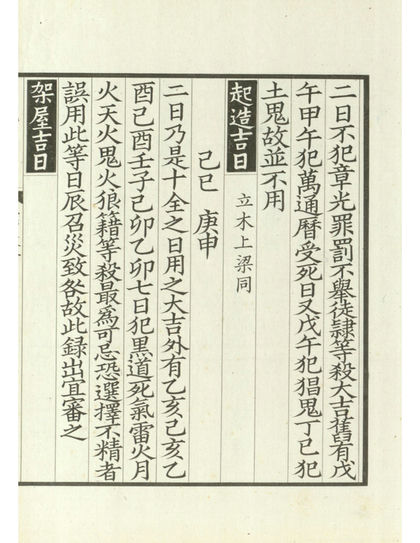 二日不犯章光罪罰不舉徒隷等殺大吉舊有戊
午甲午犯萬通曆受死日又戊午犯猖鬼丁巳犯
土鬼故並不用
起造吉日 立木上梁同
己巳 庚申
二日乃是十全之日用之大吉外有乙亥己亥乙
酉己酉壬子己卯乙卯七日犯黒道死氣雷火月
火天火鬼火狼籍等殺最爲可忌恐選擇不精者
誤用此等日辰召災致咎故此録出宜審之
架屋吉日